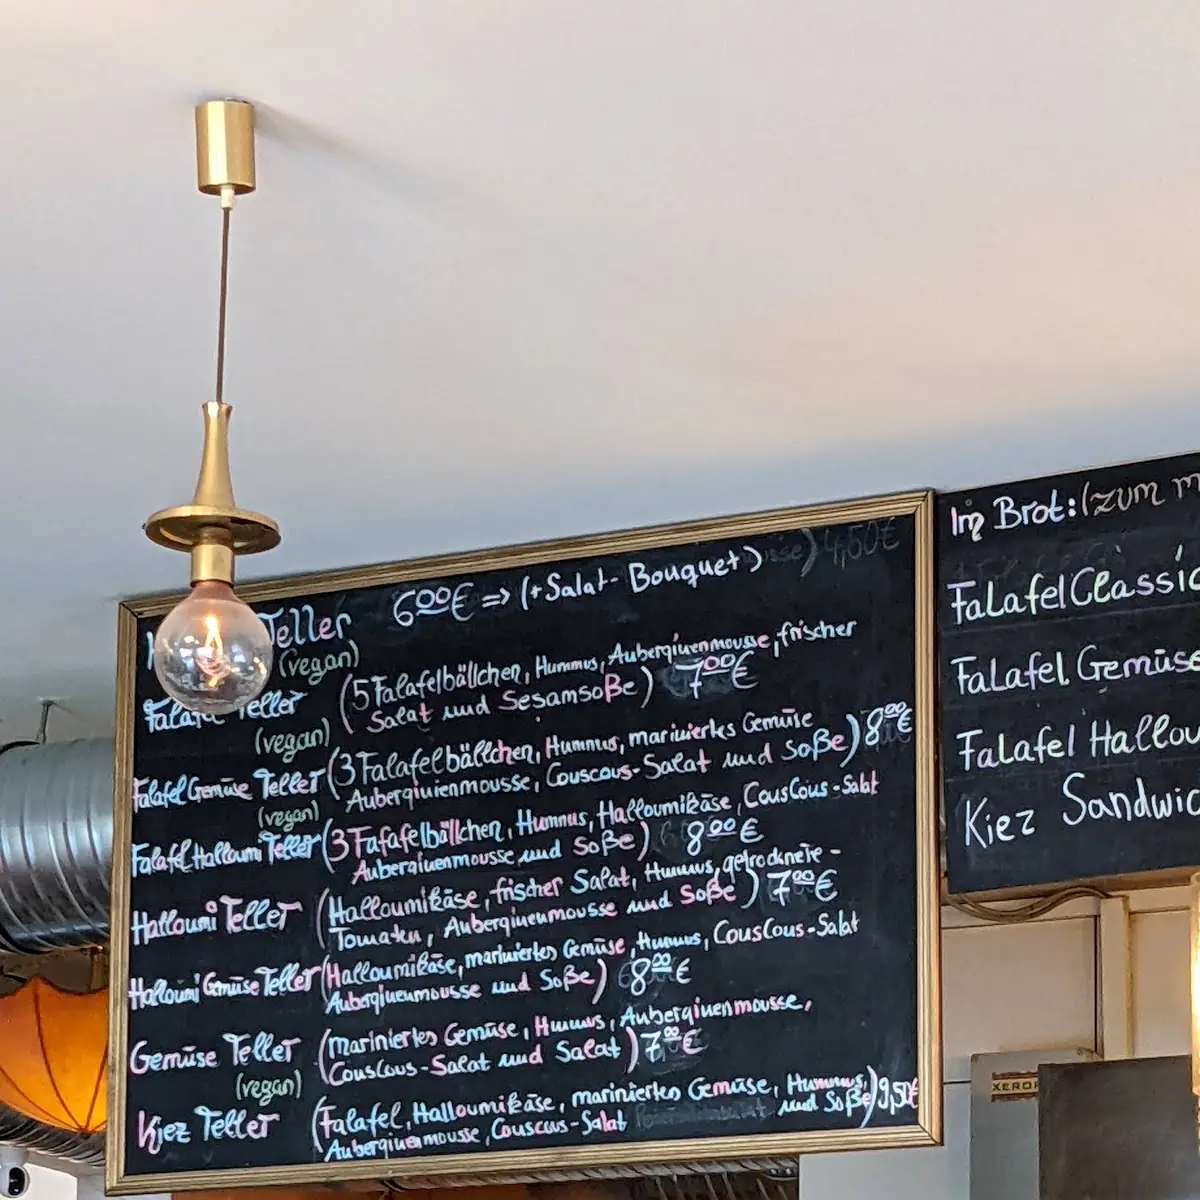 Teller 6⁰⁰€ => (+Salat-Bouquet)
4,50€
(vegan)
Falafel Teller (5 Falafelbällchen, Hummus, Auberginenmousse, frischer
Salat und Sesamsoße) 7⁰⁰€
(vegan)
Falafel Gemüse Teller (3 Falafelbällchen, Hummus, mariniertes Gemüse
Auberginenmousse, Couscous-Salat und Soße) 8⁰⁰€
(vegan)
Falafel Halloumi Teller (3 Fafafelbällchen, Hummus, Halloumikäse, CousCous-Salat
Auberginenmousse und Soße) 8⁰⁰€
Halloumi Teller (Halloumikäse, frischer Salat, Hummus, getrocknete-
Tomaten, Auberginenmousse und Soße) 7⁰⁰€
Halloumi Gemüse Teller (Halloumikäse, mariniertes Gemüse, Hummus, CousCous-Salat
Auberginenmousse und Soße) 8⁰⁰€
Gemüse Teller (mariniertes Gemüse, Hummus, Auberginenmousse,
CousCous-Salat und Salat) 7⁰⁰€
(vegan)
Kiez Teller (Falafel, Halloumikäse, mariniertes Gemüse, Hummus,
Auberginenmousse, Couscous-Salat und Soße) 9,50€
Im Brot: (zum m
Falafel Classic
Falafel Gemüse
Falafel Hallou
Kiez Sandwic
XEROX